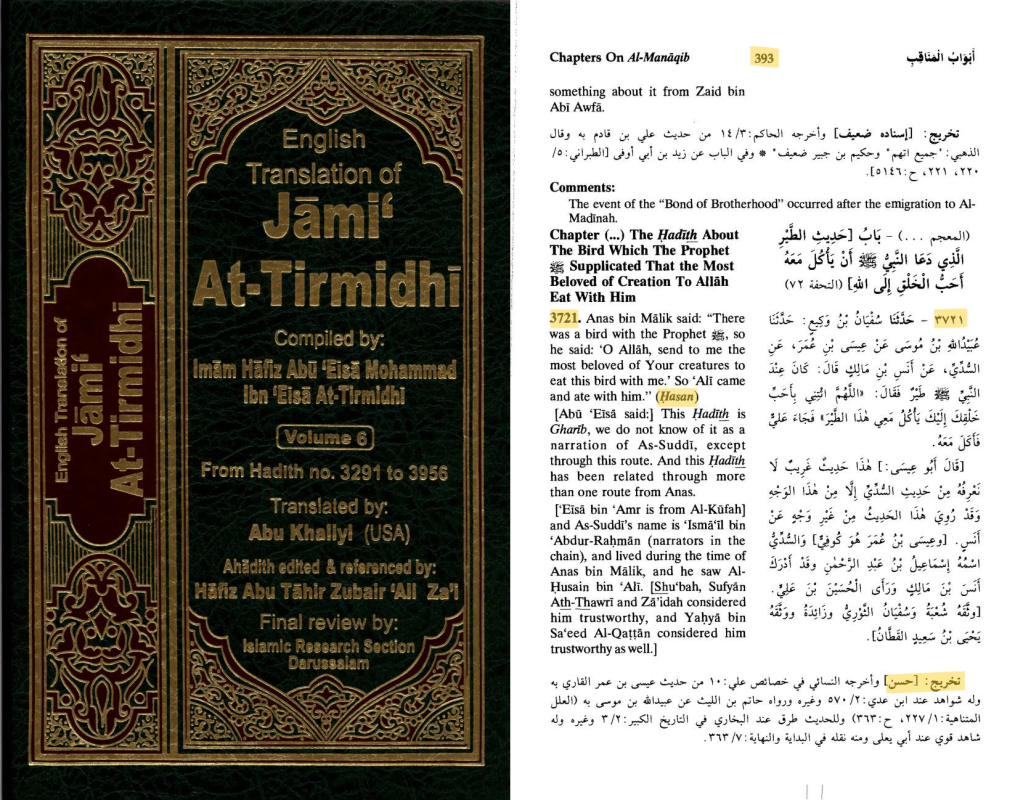 English Translation of
Jāmi‘
At-Tirmidhī
English
Translation of
Jāmi‘
At-Tirmidhī
Compiled by:
Imām Hāfiz Abū ‘Eisā Mohammad
Ibn ‘Eisā At-Tirmidhi
Volume 6
From Hadith no. 3291 to 3956
Translated by:
Abu Khaliyl (USA)
Ahādith edited & referenced by:
Hāfiz Abu Tāhir Zubair ‘Ali Za'i
Final review by:
Islamic Research Section
Darussalam
Chapters On Al-Manāqib 393 أَبْوَابُ الْمَنَاقِبِ
something about it from Zaid bin
Abī Awfā.
تخريج: [إسناده ضعيف] وأخرجه الحاكم: ١٤/٣ من حديث علي بن قادم به وقال
الذهبي: "جميع اتهم" وحكيم بن جبير ضعيف" * وفي الباب عن زيد بن أبي أوفى [الطبراني: ٥/
٢٢٠، ٢٢١، ح: ٥١٤٦].
Comments:
The event of the “Bond of Brotherhood” occurred after the emigration to Al-
Madīnah.
Chapter (...) The Ḥadīth About
The Bird Which The Prophet
ﷺ Supplicated That the Most
Beloved of Creation To Allāh
Eat With Him
(المعجم ...) - بَابُ [حَدِيثِ الطَّيْرِ
الَّذِي دَعَا النَّبِيُّ ﷺ أَنْ يَأْكُلَ مَعَهُ
أَحَبُّ الْخَلْقِ إِلَى اللهِ] (التحفة ٧٢)
3721. Anas bin Mālik said: “There
was a bird with the Prophet ﷺ, so
he said: ‘O Allāh, send to me the
most beloved of Your creatures to
eat this bird with me.’ So ‘Alī came
and ate with him.” (Ḥasan)
[Abū ‘Eīsā said:] This Ḥadīth is
Gharīb, we do not know of it as a
narration of As-Suddī, except
through this route. And this Ḥadīth
has been related through more
than one route from Anas.
[‘Eīsā bin ‘Amr is from Al-Kūfah]
and As-Suddī’s name is ‘Ismā‘īl bin
‘Abdur-Raḥmān (narrators in the
chain), and lived during the time of
Anas bin Mālik, and he saw Al-
Ḥusain bin ‘Alī. [Shu‘bah, Sufyān
Ath-Thawrī and Zā’idah considered
him trustworthy, and Yaḥyā bin
Sa‘eed Al-Qaṭṭān considered him
trustworthy as well.]
٣٧٢١ - حَدَّثَنَا سُفْيَانُ بْنُ وَكِيعٍ: حَدَّثَنَا
عُبَيْدُاللهِ بْنُ مُوسَى عَنْ عِيسَى بْنِ عُمَرَ، عَنِ
السُّدِّيِّ، عَنْ أَنَسِ بْنِ مَالِكٍ قَالَ: كَانَ عِنْدَ
النَّبِيِّ ﷺ طَيْرٌ فَقَالَ: «اللَّهُمَّ ائْتِنِي بِأَحَبِّ
خَلْقِكَ إِلَيْكَ يَأْكُلُ مَعِي هٰذَا الطَّيْرَ» فَجَاءَ عَلِيٌّ
فَأَكَلَ مَعَهُ.
[قَالَ أَبُو عِيسَى:] هٰذَا حَدِيثٌ غَرِيبٌ لَا
نَعْرِفُهُ مِنْ حَدِيثِ السُّدِّيِّ إِلَّا مِنْ هٰذَا الْوَجْهِ
وَقَدْ رُوِيَ هٰذَا الْحَدِيثُ مِنْ غَيْرِ وَجْهٍ عَنْ
أَنَسٍ. [وعِيسَى بْنُ عُمَرَ هُوَ كُوفِيٌّ] وَالسُّدِّيُّ
اسْمُهُ إِسْمَاعِيلُ بْنُ عَبْدِ الرَّحْمٰنِ وَقَدْ أَدْرَكَ
أَنَسَ بْنَ مَالِكٍ وَرَأَى الْحُسَيْنَ بْنَ عَلِيٍّ.
[وثَّقَهُ شُعْبَةُ وَسُفْيَانُ الثَّوْرِيُّ وَزَائِدَةُ وَوَثَّقَهُ
يَحْيَى بْنُ سَعِيدٍ الْقَطَّانُ].
تخريج: [حسن] وأخرجه النسائي في خصائص علي: ١٠ من حديث عيسى بن عمر القاري به
وله شواهد عند ابن عدي: ٥٧٠/٢ وغيره ورواه حاتم بن الليث عن عبيدالله بن موسى به (العلل
المتناهية: ٢٢٧/١، ح: ٣٦٣) وللحديث طرق عند البخاري في التاريخ الكبير: ٣/٢ وغيره وله
شاهد قوي عند أبي يعلى ومنه نقله في البداية والنهاية: ٣٦٣/٧.